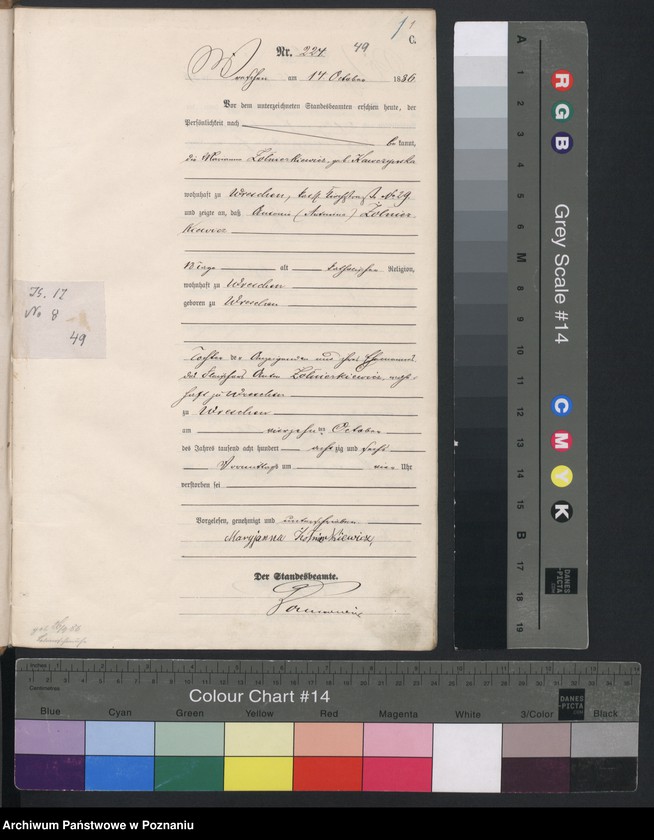 1
C.
Nr. 224. 49
Wreschen am 17 October 1886.
Vor dem unterzeichneten Standesbeamten erschien heute, der
Persönlichkeit nach
bekannt,
die Marianna Zolnierkiewicz, geb. Kawczynska
wohnhaft zu Wreschen, No 29
und zeigte an, daß Antonie (Antonina) Zolnier-
kiewicz
alt katholischer Religion,
wohnhaft zu Wreschen
geboren zu Wreschen
Tochter der Anzeigenden und ihres Ehemannes
des Anton Zolnierkiewicz, wohn-
haft zu Wreschen
zu Wreschen
am vierzehnten October
des Jahres tausend acht hundert achtzig und sechs
Vormittags um vier Uhr
verstorben sei
Vorgelesen, genehmigt und unterschrieben
Maryjanna Zolnierkiewicz,
Der Standesbeamte.
No 8
49
Grey Scale #14
A 1 2 3 4 5 6 M 8 9 10 11 12 13 14 15 B 17 18 19
R
G
B
C
M
Y
K
DANES-PICTA
Inches
Centimetres
Colour Chart #14
DANES-PICTA.COM
Blue Cyan Green Yellow Red Magenta White 3/Color Black
Archiwum Państwowe w Poznaniu